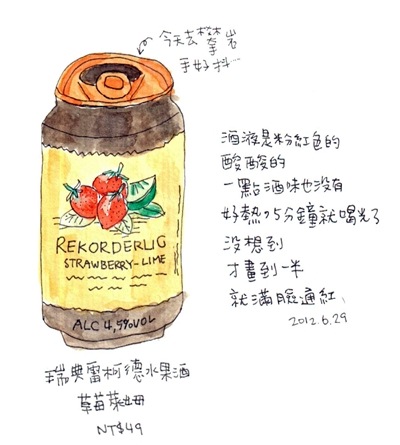 今天去攀岩
手好抖…
REKORDERLIG
STRAWBERRY-LIME
ALC 4,5%VOL
瑞典雷柯德水果酒
草莓萊姆
NT$49
酒液是粉紅色的
酸酸的
一點酒味也沒有
好熱,5分鐘就喝光了
沒想到
才畫到一半
就滿臉通紅
2012.6.29